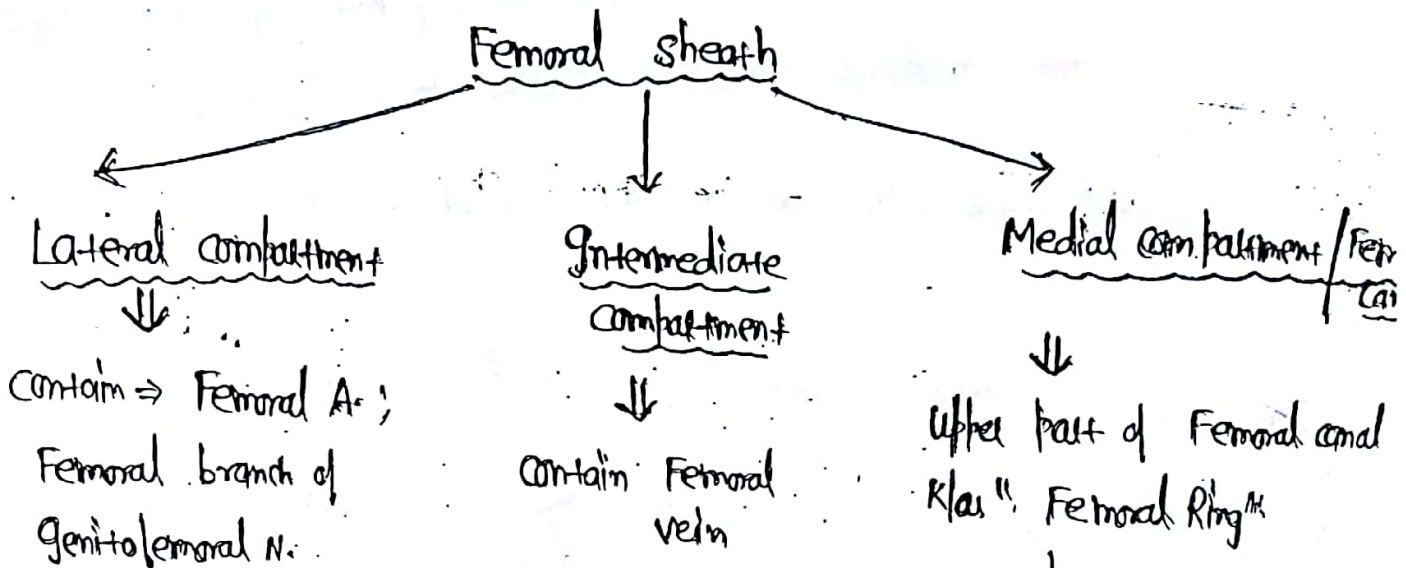 Femoral sheath
Lateral compartment
contain ⇒ Femoral A. ;
Femoral branch of
genitofemoral N.
Intermediate
compartment
contain Femoral
vein
Medial compartment /
Upper part of Femoral canal
K/as " Femoral Ring "